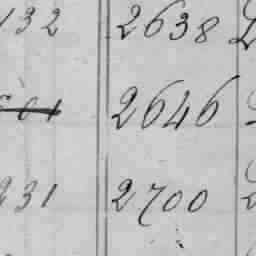 132 2638
2646
231 2700